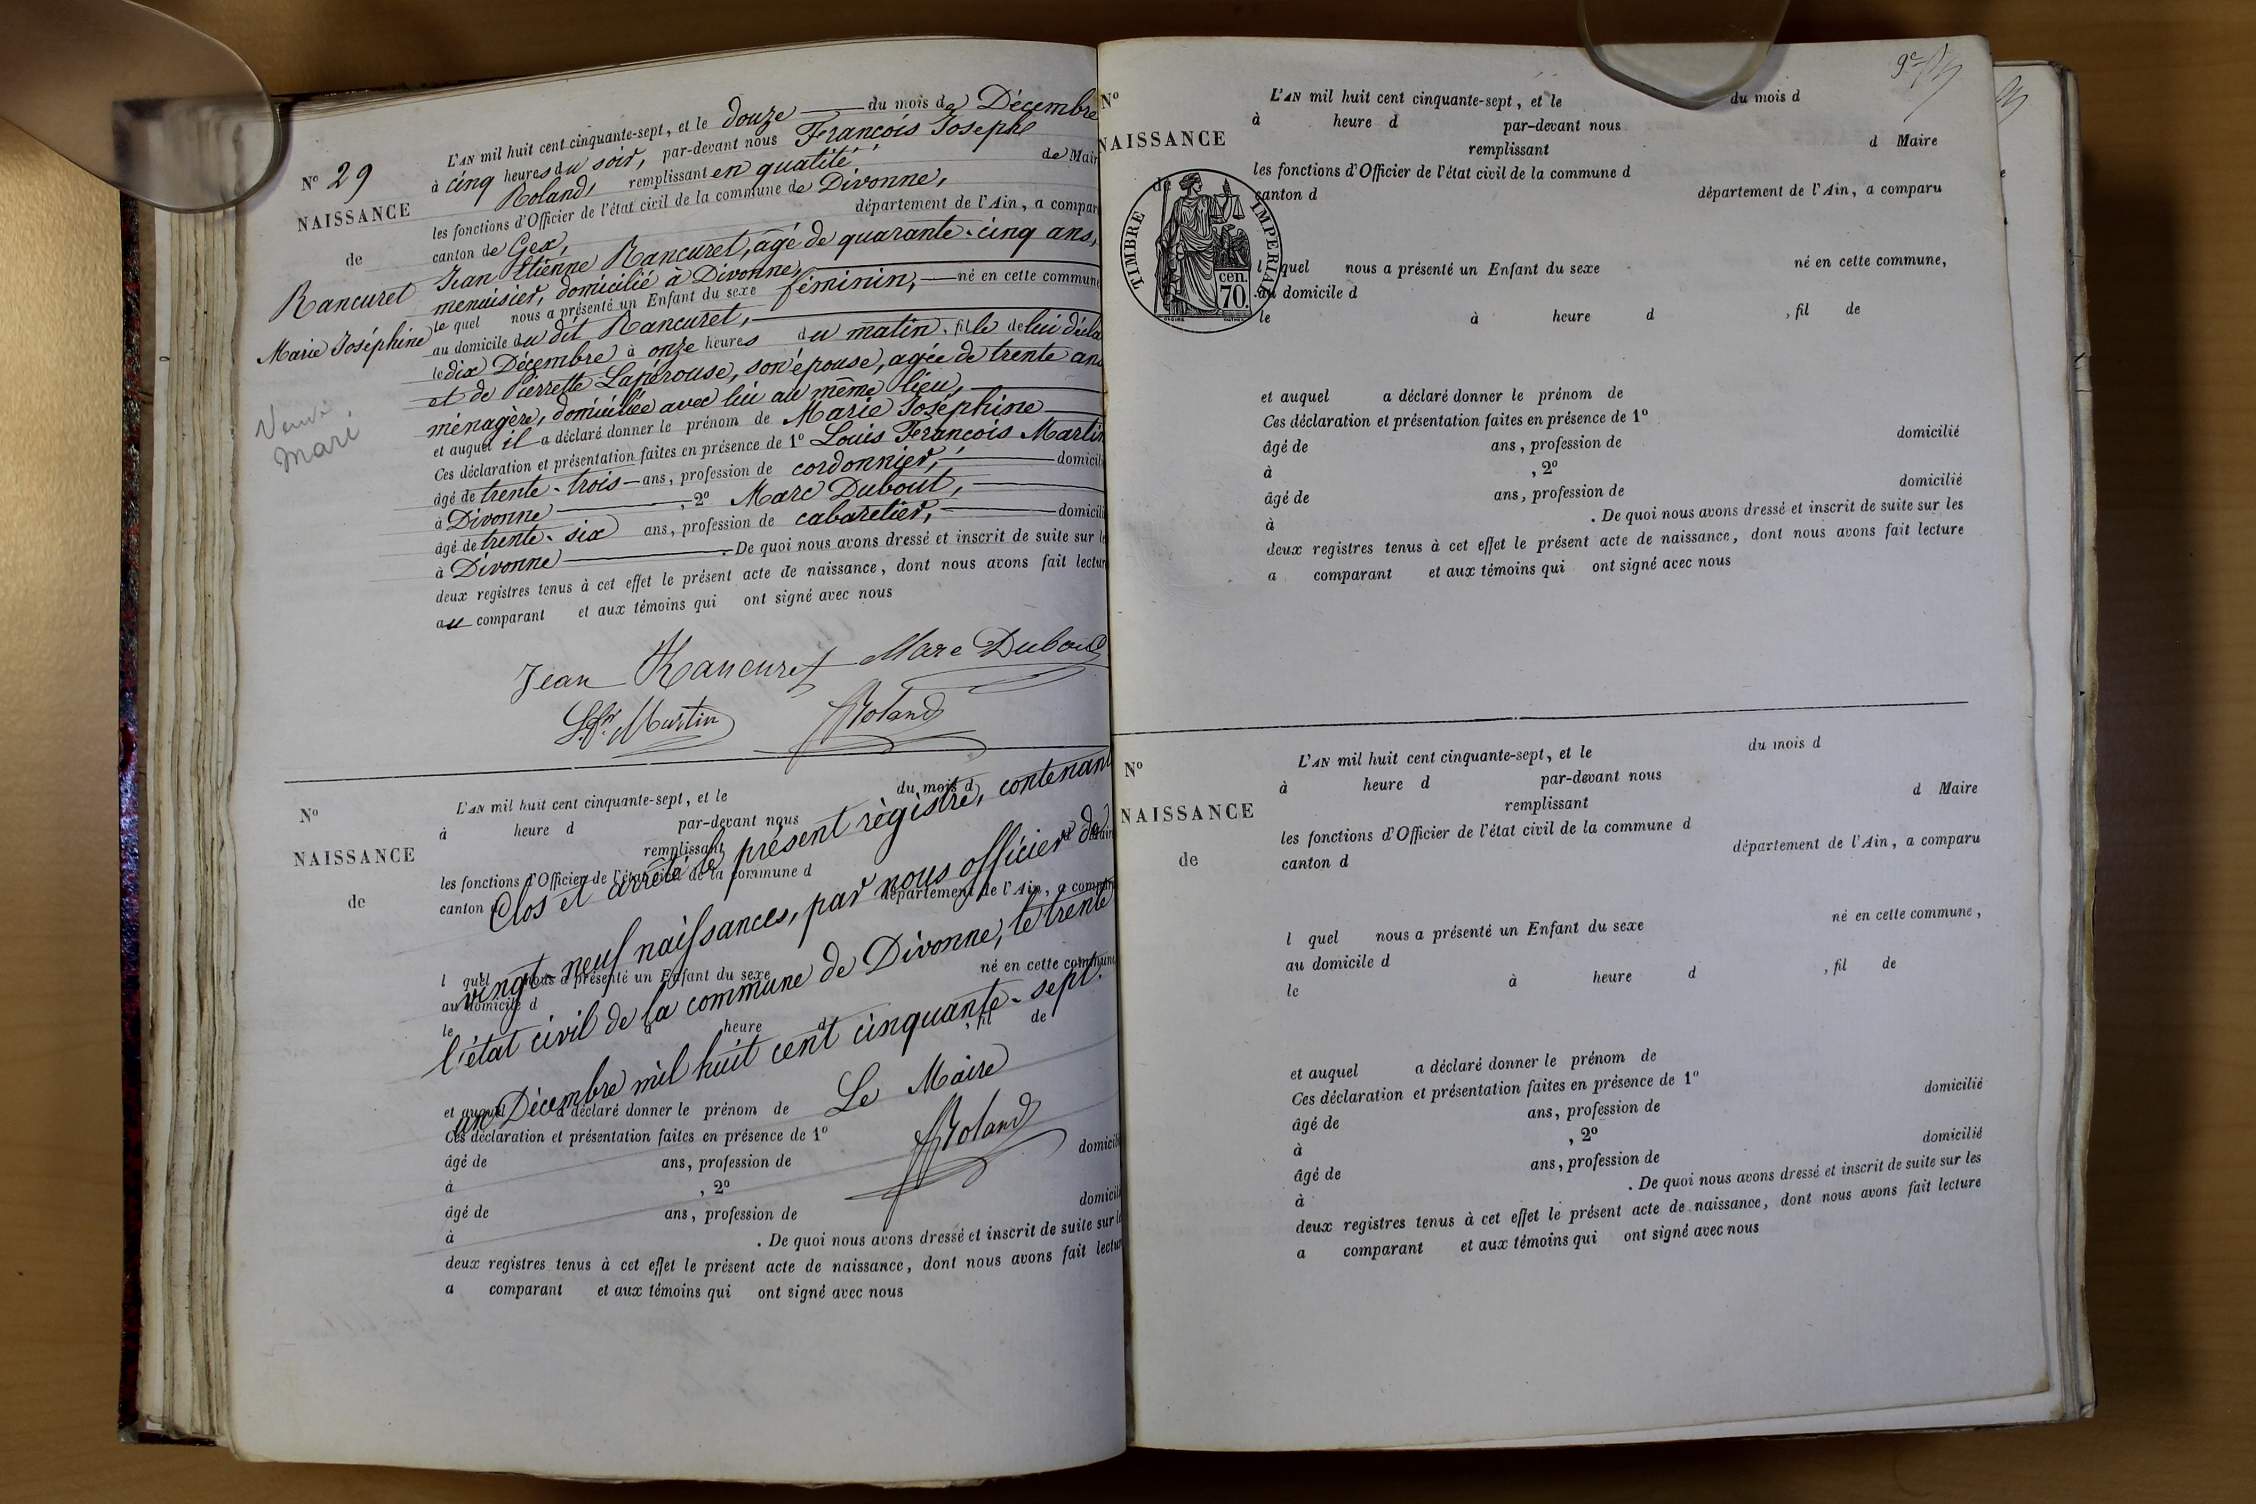 N° 29
NAISSANCE
de
Rancuret
Marie Joséphine
mari
L'AN mil huit cent cinquante-sept, et le douze du mois de Décembre
à cinq heures du soir, par-devant nous François Joseph
Roland, remplissant en qualité de Mair
les fonctions d'Officier de l'état civil de la commune de Divonne,
canton de Gex, département de l'Ain, a compar
Jean Etienne Rancuret, âgé de quarante-cinq ans,
menuisier, domicilié à Divonne,
le quel nous a présenté un Enfant du sexe féminin, né en cette commune
au domicile du dit Rancuret,
le dix Décembre à onze heures du matin, fille de lui décla
et de Pierrette Lapérouse, son épouse, agée de trente ans
ménagère, domiciliée avec lui au même lieu,
et auquel il a déclaré donner le prénom de Marie Joséphine
Ces déclaration et présentation faites en présence de 1° Louis François Martin
âgé de trente-trois ans, profession de cordonnier, domicili
à Divonne , 2° Marc Dubout,
âgé de trente-six ans, profession de cabaretier, domicili
à Divonne . De quoi nous avons dressé et inscrit de suite sur le
deux registres tenus à cet effet le présent acte de naissance, dont nous avons fait lectur
au comparant et aux témoins qui ont signé avec nous
Jean Rancuret Marc Dubout
Martin Roland
N°
NAISSANCE
de
L'AN mil huit cent cinquante-sept, et le du mois d
à heure d par-devant nous
remplissant d Maire
les fonctions d'Officier de l'état civil de la commune d
canton d département de l'Ain, a compar
Clos et arrêté le présent règistre, contenant
vingt-neuf naissances, par nous officier de
l'état civil de la commune de Divonne, le trente
un Décembre mil huit cent cinquante-sept.
Le Maire
Roland
l quel nous a présenté un Enfant du sexe né en cette commune
au domicile d
le à heure d , fil de
et auquel a déclaré donner le prénom de
Ces déclaration et présentation faites en présence de 1°
âgé de ans, profession de domicilié
à , 2°
âgé de ans, profession de domicilié
à . De quoi nous avons dressé et inscrit de suite sur le
deux registres tenus à cet effet le présent acte de naissance, dont nous avons fait lectur
a comparant et aux témoins qui ont signé avec nous
9e
N°
NAISSANCE
de
TIMBRE IMPERIAL
cen.
70.
L'AN mil huit cent cinquante-sept, et le du mois d
à heure d par-devant nous
remplissant d Maire
les fonctions d'Officier de l'état civil de la commune d
canton d département de l'Ain, a comparu
l quel nous a présenté un Enfant du sexe né en cette commune,
au domicile d
le à heure d , fil de
et auquel a déclaré donner le prénom de
Ces déclaration et présentation faites en présence de 1°
âgé de ans, profession de domicilié
à , 2°
âgé de ans, profession de domicilié
à . De quoi nous avons dressé et inscrit de suite sur les
deux registres tenus à cet effet le présent acte de naissance, dont nous avons fait lecture
a comparant et aux témoins qui ont signé avec nous
N°
NAISSANCE
de
L'AN mil huit cent cinquante-sept, et le du mois d
à heure d par-devant nous
remplissant d Maire
les fonctions d'Officier de l'état civil de la commune d
canton d département de l'Ain, a comparu
l quel nous a présenté un Enfant du sexe né en cette commune,
au domicile d
le à heure d , fil de
et auquel a déclaré donner le prénom de
Ces déclaration et présentation faites en présence de 1°
âgé de ans, profession de domicilié
à , 2°
âgé de ans, profession de domicilié
à . De quoi nous avons dressé et inscrit de suite sur les
deux registres tenus à cet effet le présent acte de naissance, dont nous avons fait lecture
a comparant et aux témoins qui ont signé avec nous